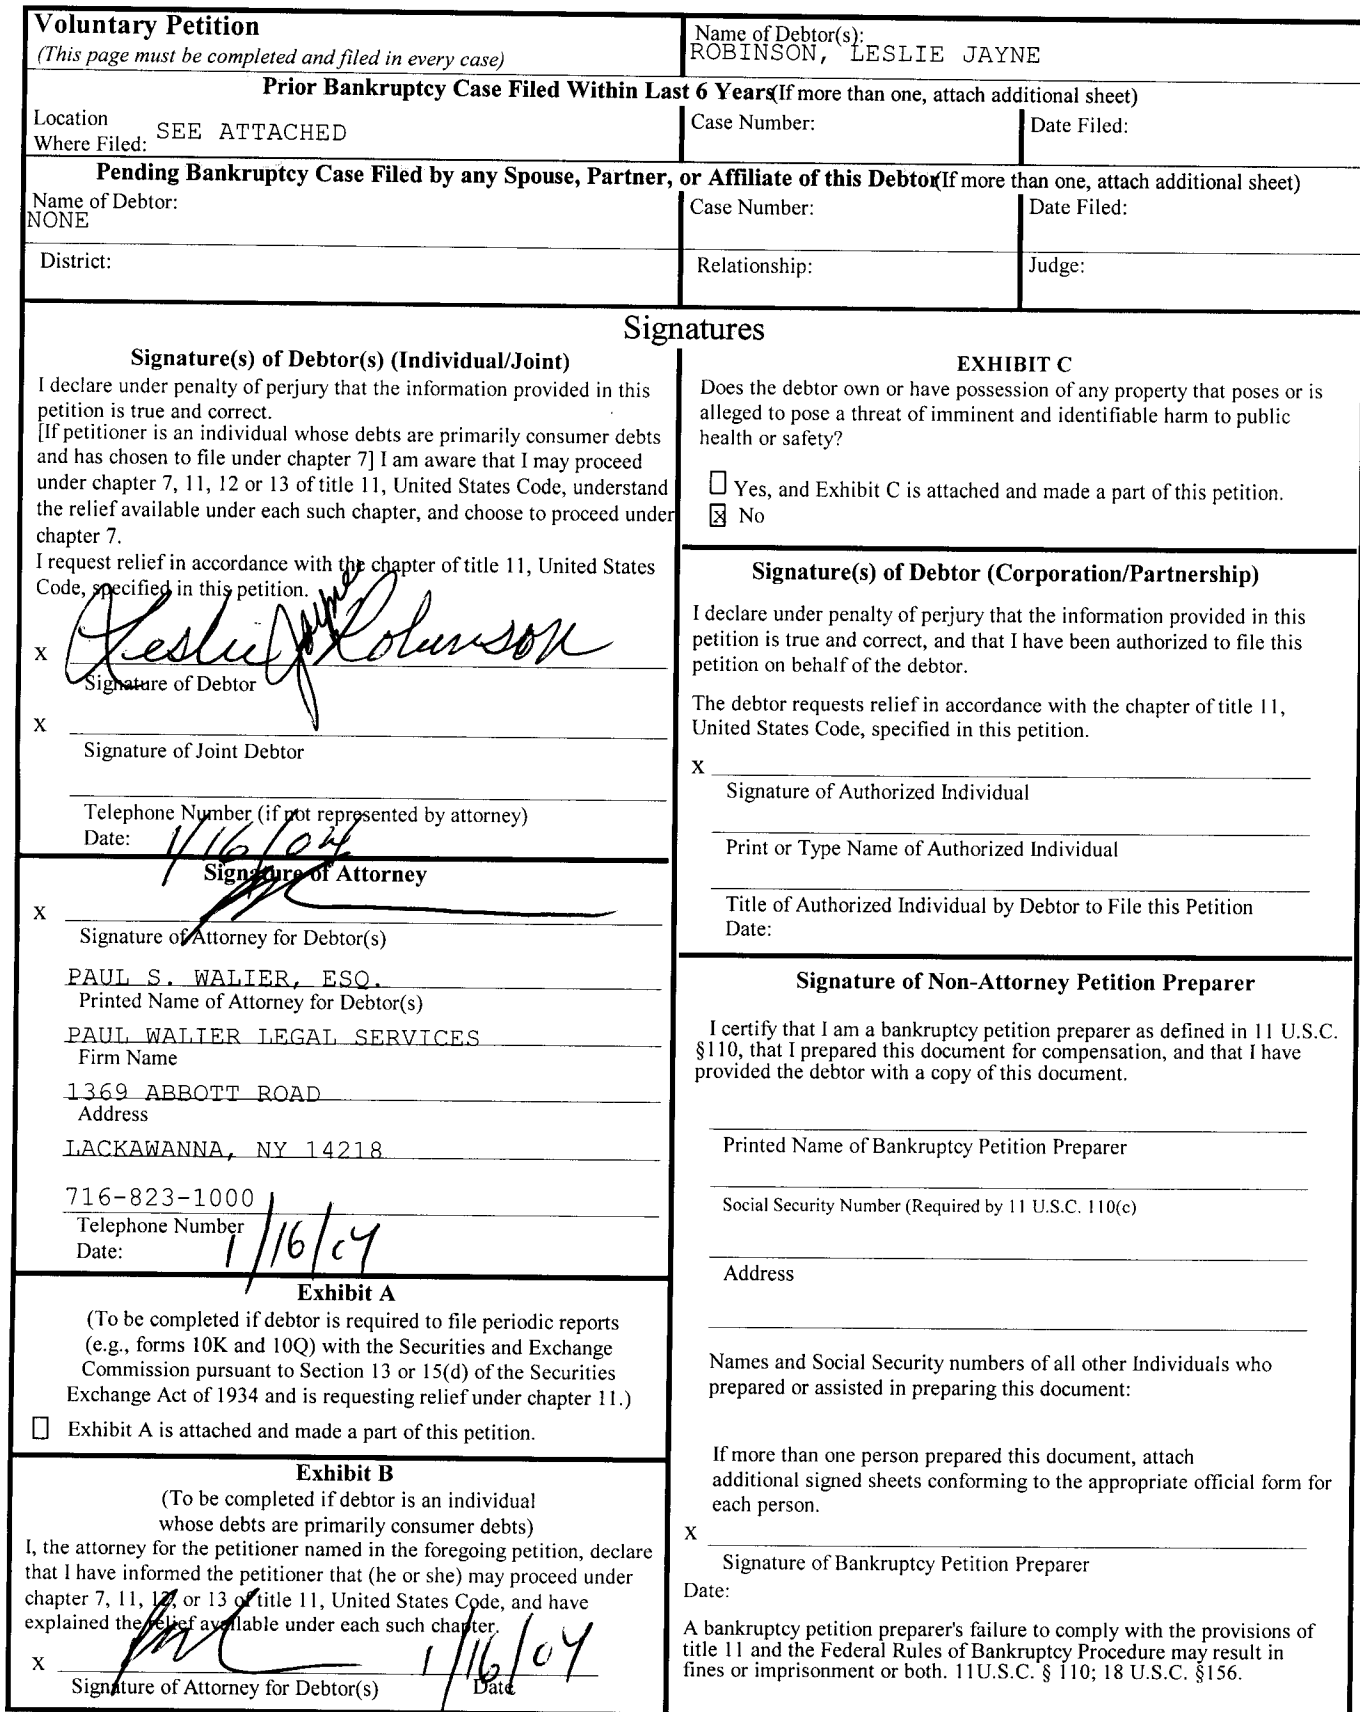 Voluntary Petition
(This page must be completed and filed in every case)
Name of Debtor(s):
ROBINSON, LESLIE JAYNE
Prior Bankruptcy Case Filed Within Last 6 Years(If more than one, attach additional sheet)
Location
Where Filed: SEE ATTACHED
Case Number:
Date Filed:
Pending Bankruptcy Case Filed by any Spouse, Partner, or Affiliate of this Debtor(If more than one, attach additional sheet)
Name of Debtor:
NONE
Case Number:
Date Filed:
District:
Relationship:
Judge:
Signatures
Signature(s) of Debtor(s) (Individual/Joint)
I declare under penalty of perjury that the information provided in this
petition is true and correct.
[If petitioner is an individual whose debts are primarily consumer debts
and has chosen to file under chapter 7] I am aware that I may proceed
under chapter 7, 11, 12 or 13 of title 11, United States Code, understand
the relief available under each such chapter, and choose to proceed under
chapter 7.
I request relief in accordance with the chapter of title 11, United States
Code, specified in this petition.
X Leslie Jayne Robinson
Signature of Debtor
X
Signature of Joint Debtor
Telephone Number (if not represented by attorney)
Date: 1/16/04
Signature of Attorney
X
Signature of Attorney for Debtor(s)
PAUL S. WALIER, ESQ.
Printed Name of Attorney for Debtor(s)
PAUL WALIER LEGAL SERVICES
Firm Name
1369 ABBOTT ROAD
Address
LACKAWANNA, NY 14218
716-823-1000
Telephone Number
Date: 1/16/04
Exhibit A
(To be completed if debtor is required to file periodic reports
(e.g., forms 10K and 10Q) with the Securities and Exchange
Commission pursuant to Section 13 or 15(d) of the Securities
Exchange Act of 1934 and is requesting relief under chapter 11.)
Exhibit A is attached and made a part of this petition.
Exhibit B
(To be completed if debtor is an individual
whose debts are primarily consumer debts)
I, the attorney for the petitioner named in the foregoing petition, declare
that I have informed the petitioner that (he or she) may proceed under
chapter 7, 11, 12, or 13 of title 11, United States Code, and have
explained the relief available under each such chapter.
X 1/16/04
Signature of Attorney for Debtor(s) Date
EXHIBIT C
Does the debtor own or have possession of any property that poses or is
alleged to pose a threat of imminent and identifiable harm to public
health or safety?
Yes, and Exhibit C is attached and made a part of this petition.
x No
Signature(s) of Debtor (Corporation/Partnership)
I declare under penalty of perjury that the information provided in this
petition is true and correct, and that I have been authorized to file this
petition on behalf of the debtor.
The debtor requests relief in accordance with the chapter of title 11,
United States Code, specified in this petition.
X
Signature of Authorized Individual
Print or Type Name of Authorized Individual
Title of Authorized Individual by Debtor to File this Petition
Date:
Signature of Non-Attorney Petition Preparer
I certify that I am a bankruptcy petition preparer as defined in 11 U.S.C.
§110, that I prepared this document for compensation, and that I have
provided the debtor with a copy of this document.
Printed Name of Bankruptcy Petition Preparer
Social Security Number (Required by 11 U.S.C. 110(c)
Address
Names and Social Security numbers of all other Individuals who
prepared or assisted in preparing this document:
If more than one person prepared this document, attach
additional signed sheets conforming to the appropriate official form for
each person.
X
Signature of Bankruptcy Petition Preparer
Date:
A bankruptcy petition preparer's failure to comply with the provisions of
title 11 and the Federal Rules of Bankruptcy Procedure may result in
fines or imprisonment or both. 11U.S.C. § 110; 18 U.S.C. §156.